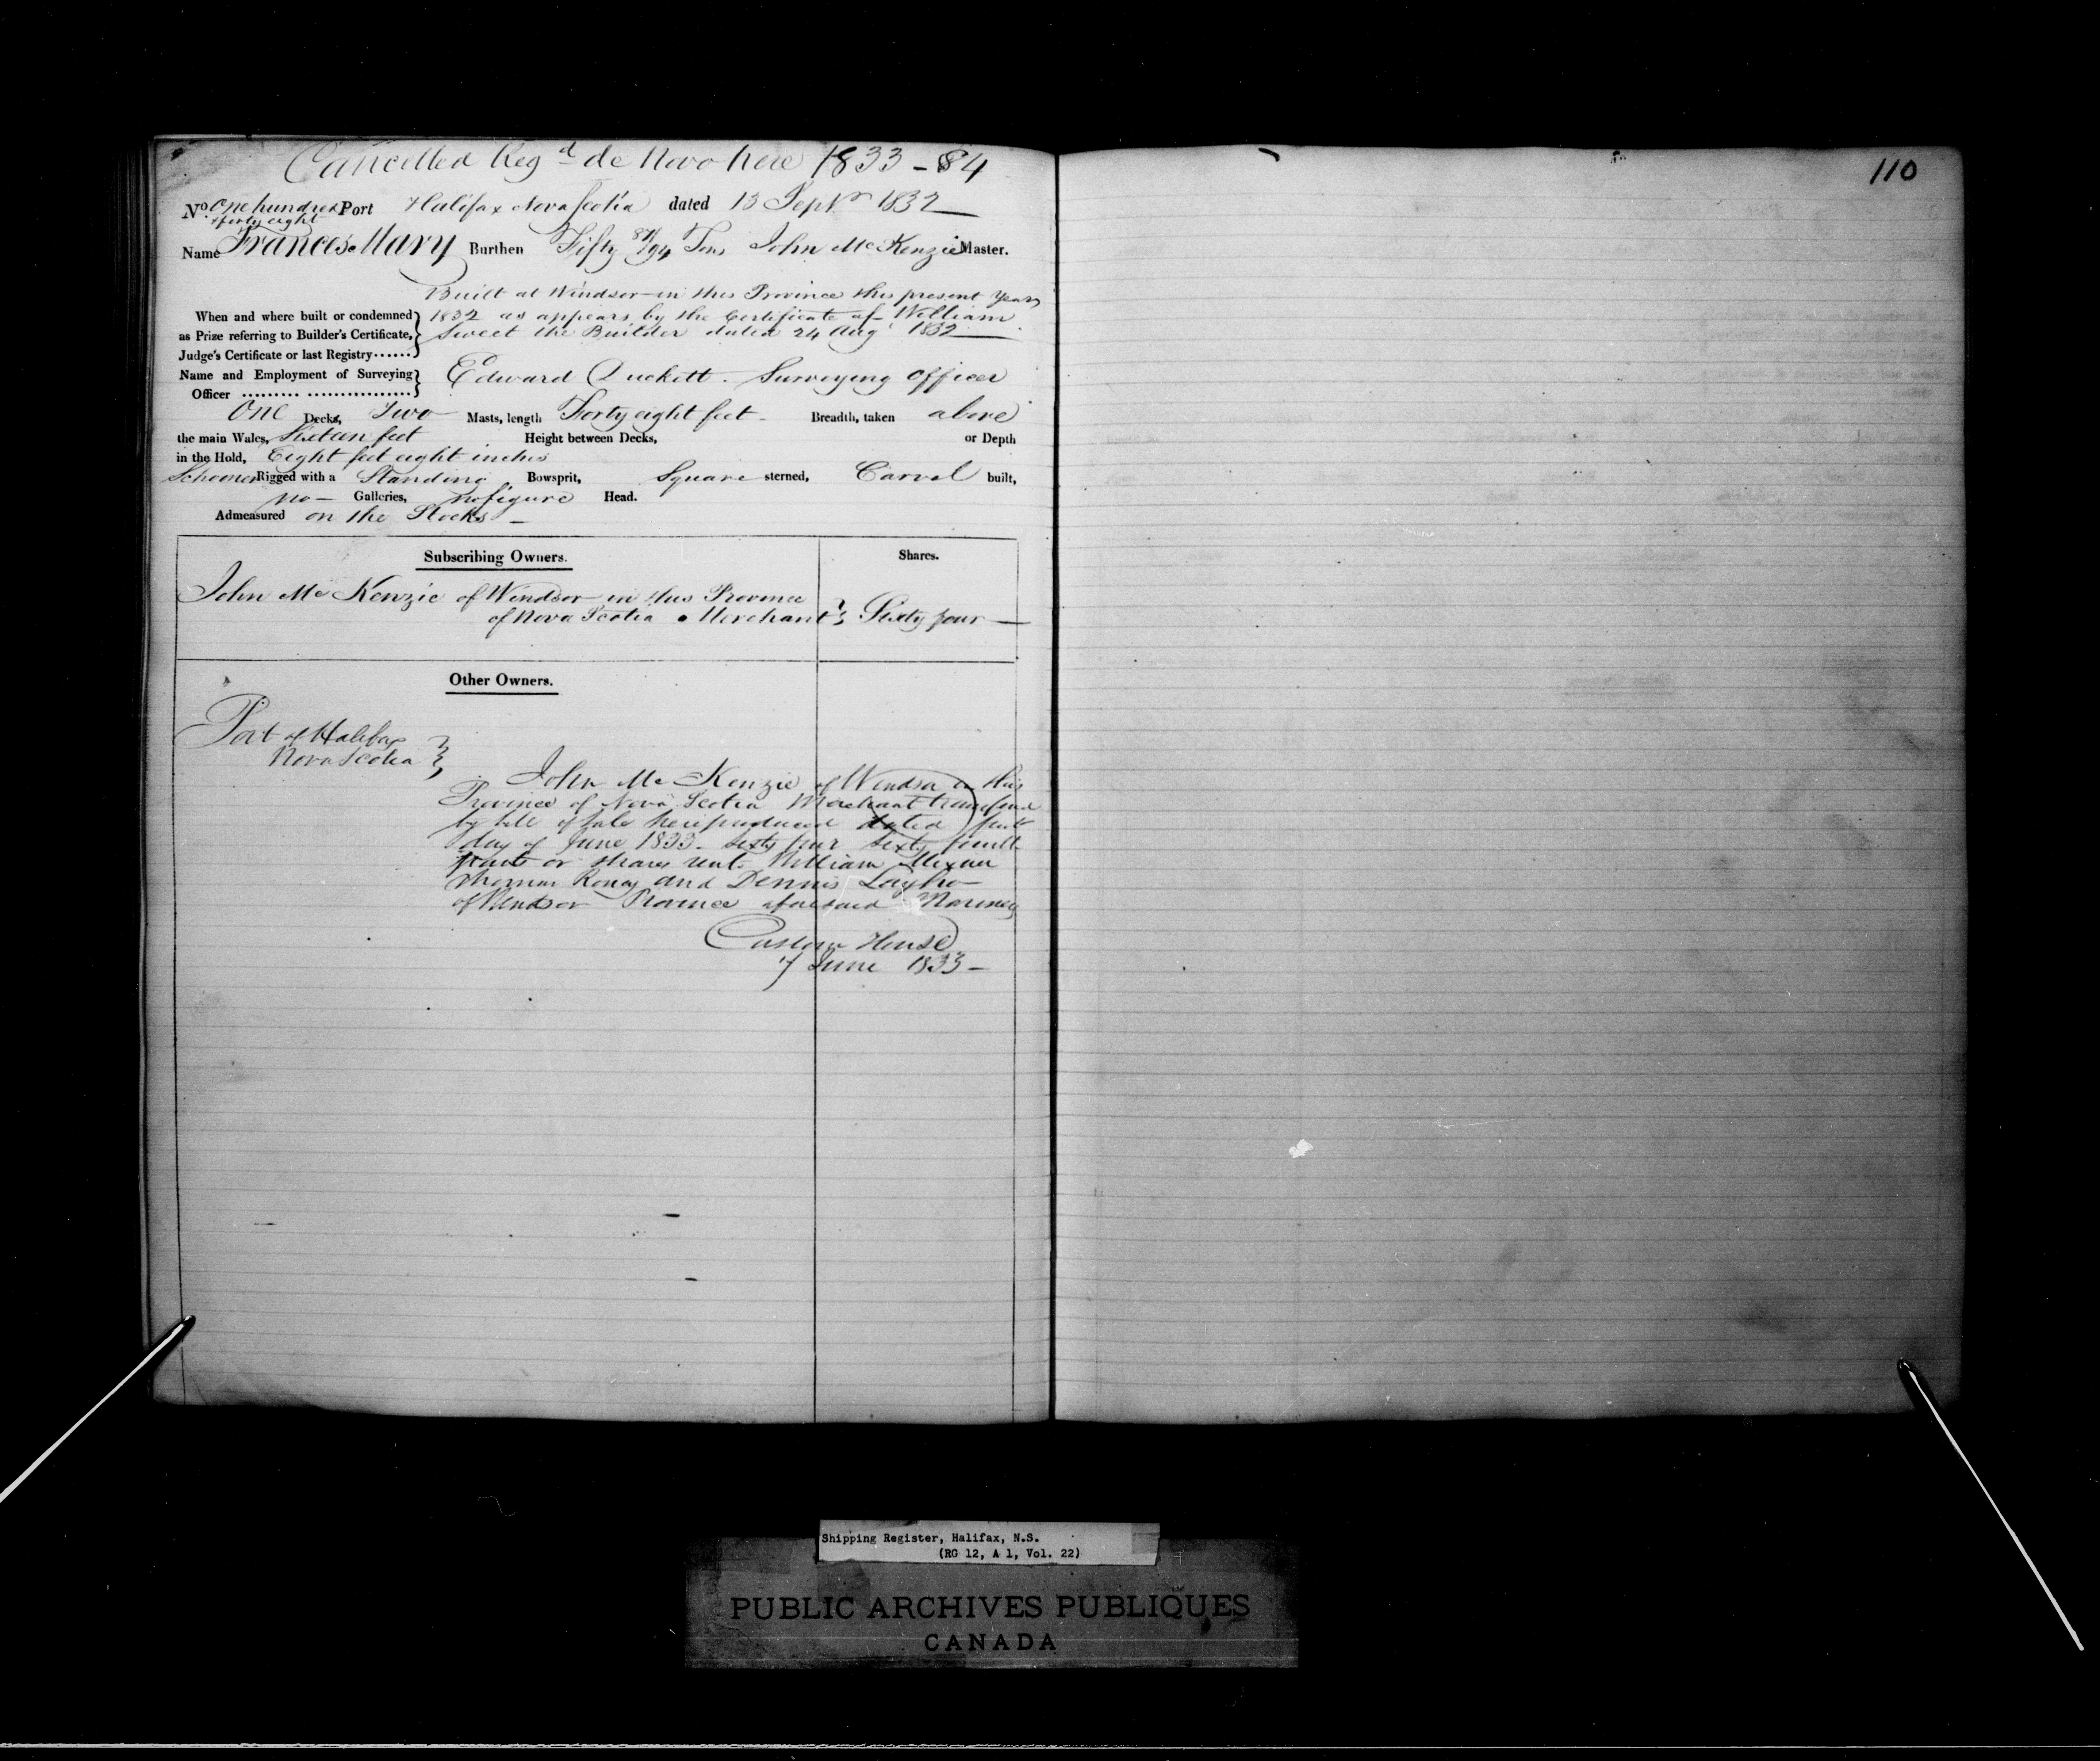 Cancelled Regd de Novo here 1833 - 84
110
No. One hundred Port Halifax Nova Scotia dated 13 Septr 1832
& forty eight
Name Frances Mary Burthen Fifty 84/94 Tons John McKenzie Master.
Built at Windsor in this Province this present year
When and where built or condemned 1832 as appears by the Certificate of William
as Prize referring to Builder's Certificate, Sweet the Builder dated 24 Augt 1832
Judge's Certificate or last Registry
Name and Employment of Surveying Edward Duckett. Surveying Officer
Officer
One Decks, Two Masts, length Forty eight feet Breadth, taken above
the main Wales, Sixteen feet Height between Decks, or Depth
in the Hold, Eight feet eight inches
Schooner Rigged with a Standing Bowsprit, Square sterned, Carvel built,
no Galleries, no figure Head.
Admeasured on the Stocks
Subscribing Owners. Shares.
John McKenzie of Windsor in this Province
of Nova Scotia Merchant Sixty four
Other Owners.
Port of Halifax
Nova Scotia
John McKenzie of Windsor in this
Province of Nova Scotia Merchant transferred
by bill of sale here produced dated first
day of June 1833 - Sixty four Sixty fourth
parts or shares unto William
Thomas and Dennis
of Windsor Province aforesaid Mariners
Custom House
7 June 1833 -
Shipping Register, Halifax, N.S.
(RG 12, A 1, Vol. 22)
PUBLIC ARCHIVES PUBLIQUES
CANADA